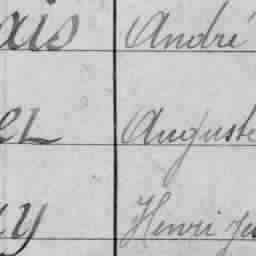 ais André
el Auguste
y Henri Ju